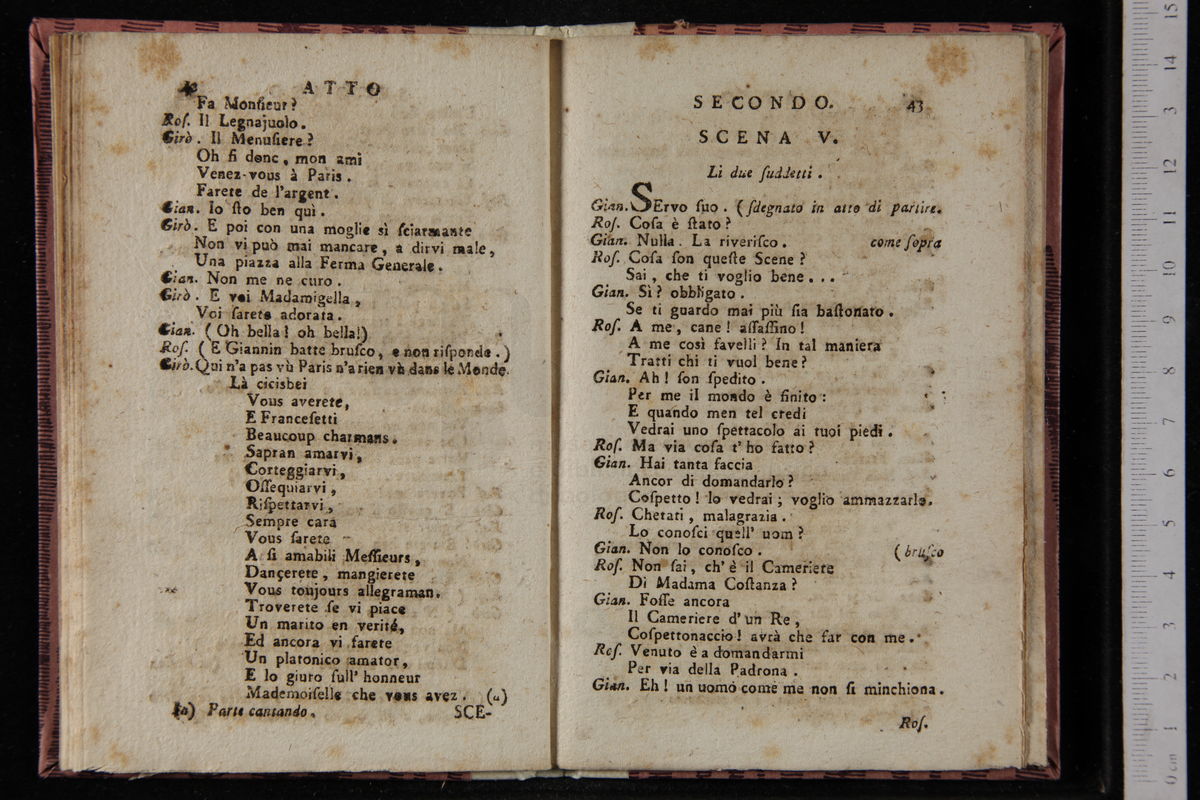 42 ATTO
Fa Monſieur?
Roſ. Il Legnajuolo.
Girò. Il Menuſiere?
Oh fi donc, mon ami
Venez-vous à Paris.
Farete de l'argent.
Gian. Io ſto ben quì.
Girò. E poi con una moglie sì ſciarmante
Non vi può mai mancare, a dirvi male,
Una piazza alla Ferma Generale.
Gian. Non me ne curo.
Girò. E voi Madamigella,
Voi ſarete adorata.
Gian. (Oh bella! oh bella!)
Roſ. (E Giannin batte bruſco, e non riſponde.)
Girò. Qui n'a pas vù Paris n'a rien vù dans le Monde.
Là cicisbei
Vous averete,
E Franceſetti
Beaucoup charmans.
Sapran amarvi,
Corteggiarvi,
Oſſequiarvi,
Riſpettarvi,
Sempre cara
Vous ſarete
A ſi amabili Meſſieurs,
Dançerete, mangierete
Vous toùjours allegraman.
Troverete ſe vi piace
Un marito en verité,
Ed ancora vi farete
Un platonico amator,
E lo giuro ſull' honneur
Mademoiſelle che vous avez. (a)
(a) Parte cantando. SCE-
SECONDO. 43
SCENA V.
Li due ſuddetti.
Gian. SErvo ſuo. (ſdegnato in atto di partire.
Roſ. Coſa è ſtato?
Gian. Nulla. La riveriſco. come ſopra
Roſ. Coſa ſon queſte Scene?
Sai, che ti voglio bene...
Gian. Sì? obbligato.
Se ti guardo mai più ſia baſtonato.
Roſ. A me, cane! aſſaſſino!
A me così favelli? In tal maniera
Tratti chi ti vuol bene?
Gian. Ah! ſon ſpedito.
Per me il mondo è finito:
E quando men tel credi
Vedrai uno ſpettacolo ai tuoi piedi.
Roſ. Ma via coſa t' ho fatto?
Gian. Hai tanta faccia
Ancor di domandarlo?
Coſpetto! lo vedrai; voglio ammazzarlo.
Roſ. Chetati, malagrazia.
Lo conoſci quell' uom?
Gian. Non lo conoſco. (bruſco
Roſ. Non ſai, ch' è il Cameriete
Di Madama Coſtanza?
Gian. Foſſe ancora
Il Cameriere d' un Re,
Coſpettonaccio! avrà che far con me.
Roſ. Venuto è a domandarmi
Per via della Padrona.
Gian. Eh! un uomo come me non ſi minchiona.
Roſ.
15
14
13
12
11
10
9
8
7
6
5
4
3
2
1
0 cm